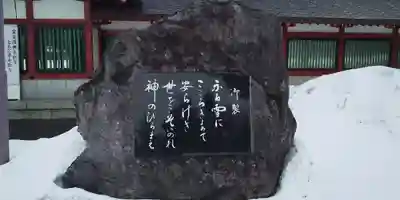 御製
ふる雪に
こころきよめて
安らけき
世をこそいのれ
神のひろまへ